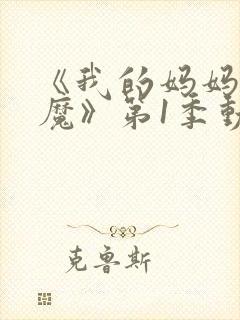 《我的妈妈
魔》第1季動
克鲁斯